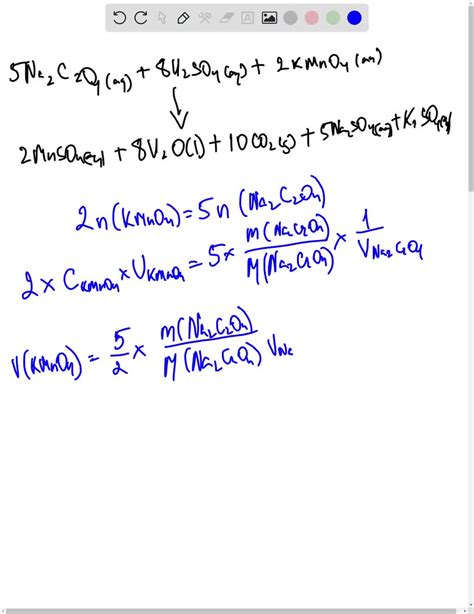 5Na₂C₂O₄(aq) + 8H₂SO₄(aq) + 2KMnO₄(aq)
↓
2MnSO₄(aq) + 8H₂O(l) + 10CO₂(g) + 5Na₂SO₄(aq) + K₂SO₄(aq)
2n(KMnO₄) = 5n(Na₂C₂O₄)
2 × C_KMnO₄ × V_KMnO₄ = 5 × m(Na₂C₂O₄) / M(Na₂C₂O₄) × 1 / V_Na₂C₂O₄
V(KMnO₄) = 5/2 × m(Na₂C₂O₄) / M(Na₂C₂O₄) V_Na